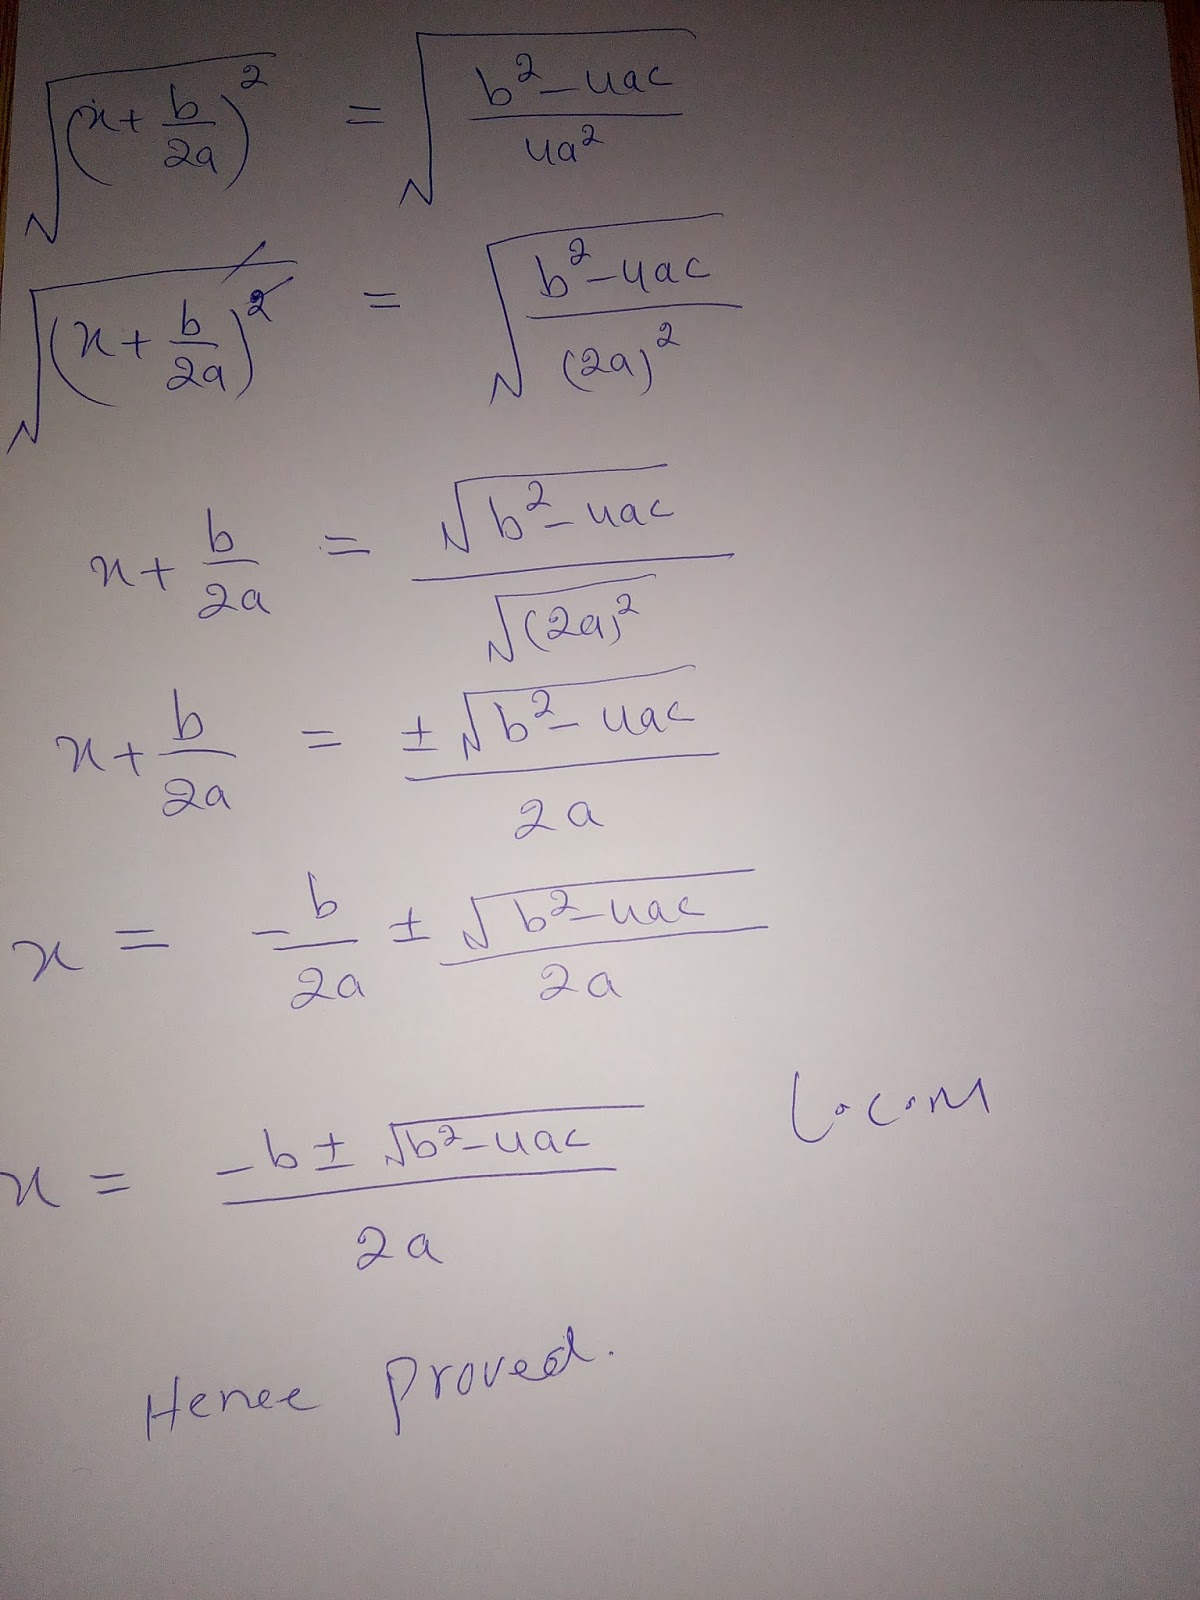 √(x + b/2a)² = √(b² – 4ac / 4a²)
√(x + b/2a)² = √(b² – 4ac / (2a)²)
x + b/2a = √b² – 4ac / √(2a)²
x + b/2a = ± √b² – 4ac / 2a
x = – b/2a ± √b² – 4ac / 2a
L.C.M
x = – b ± √b² – 4ac / 2a
Hence proved.